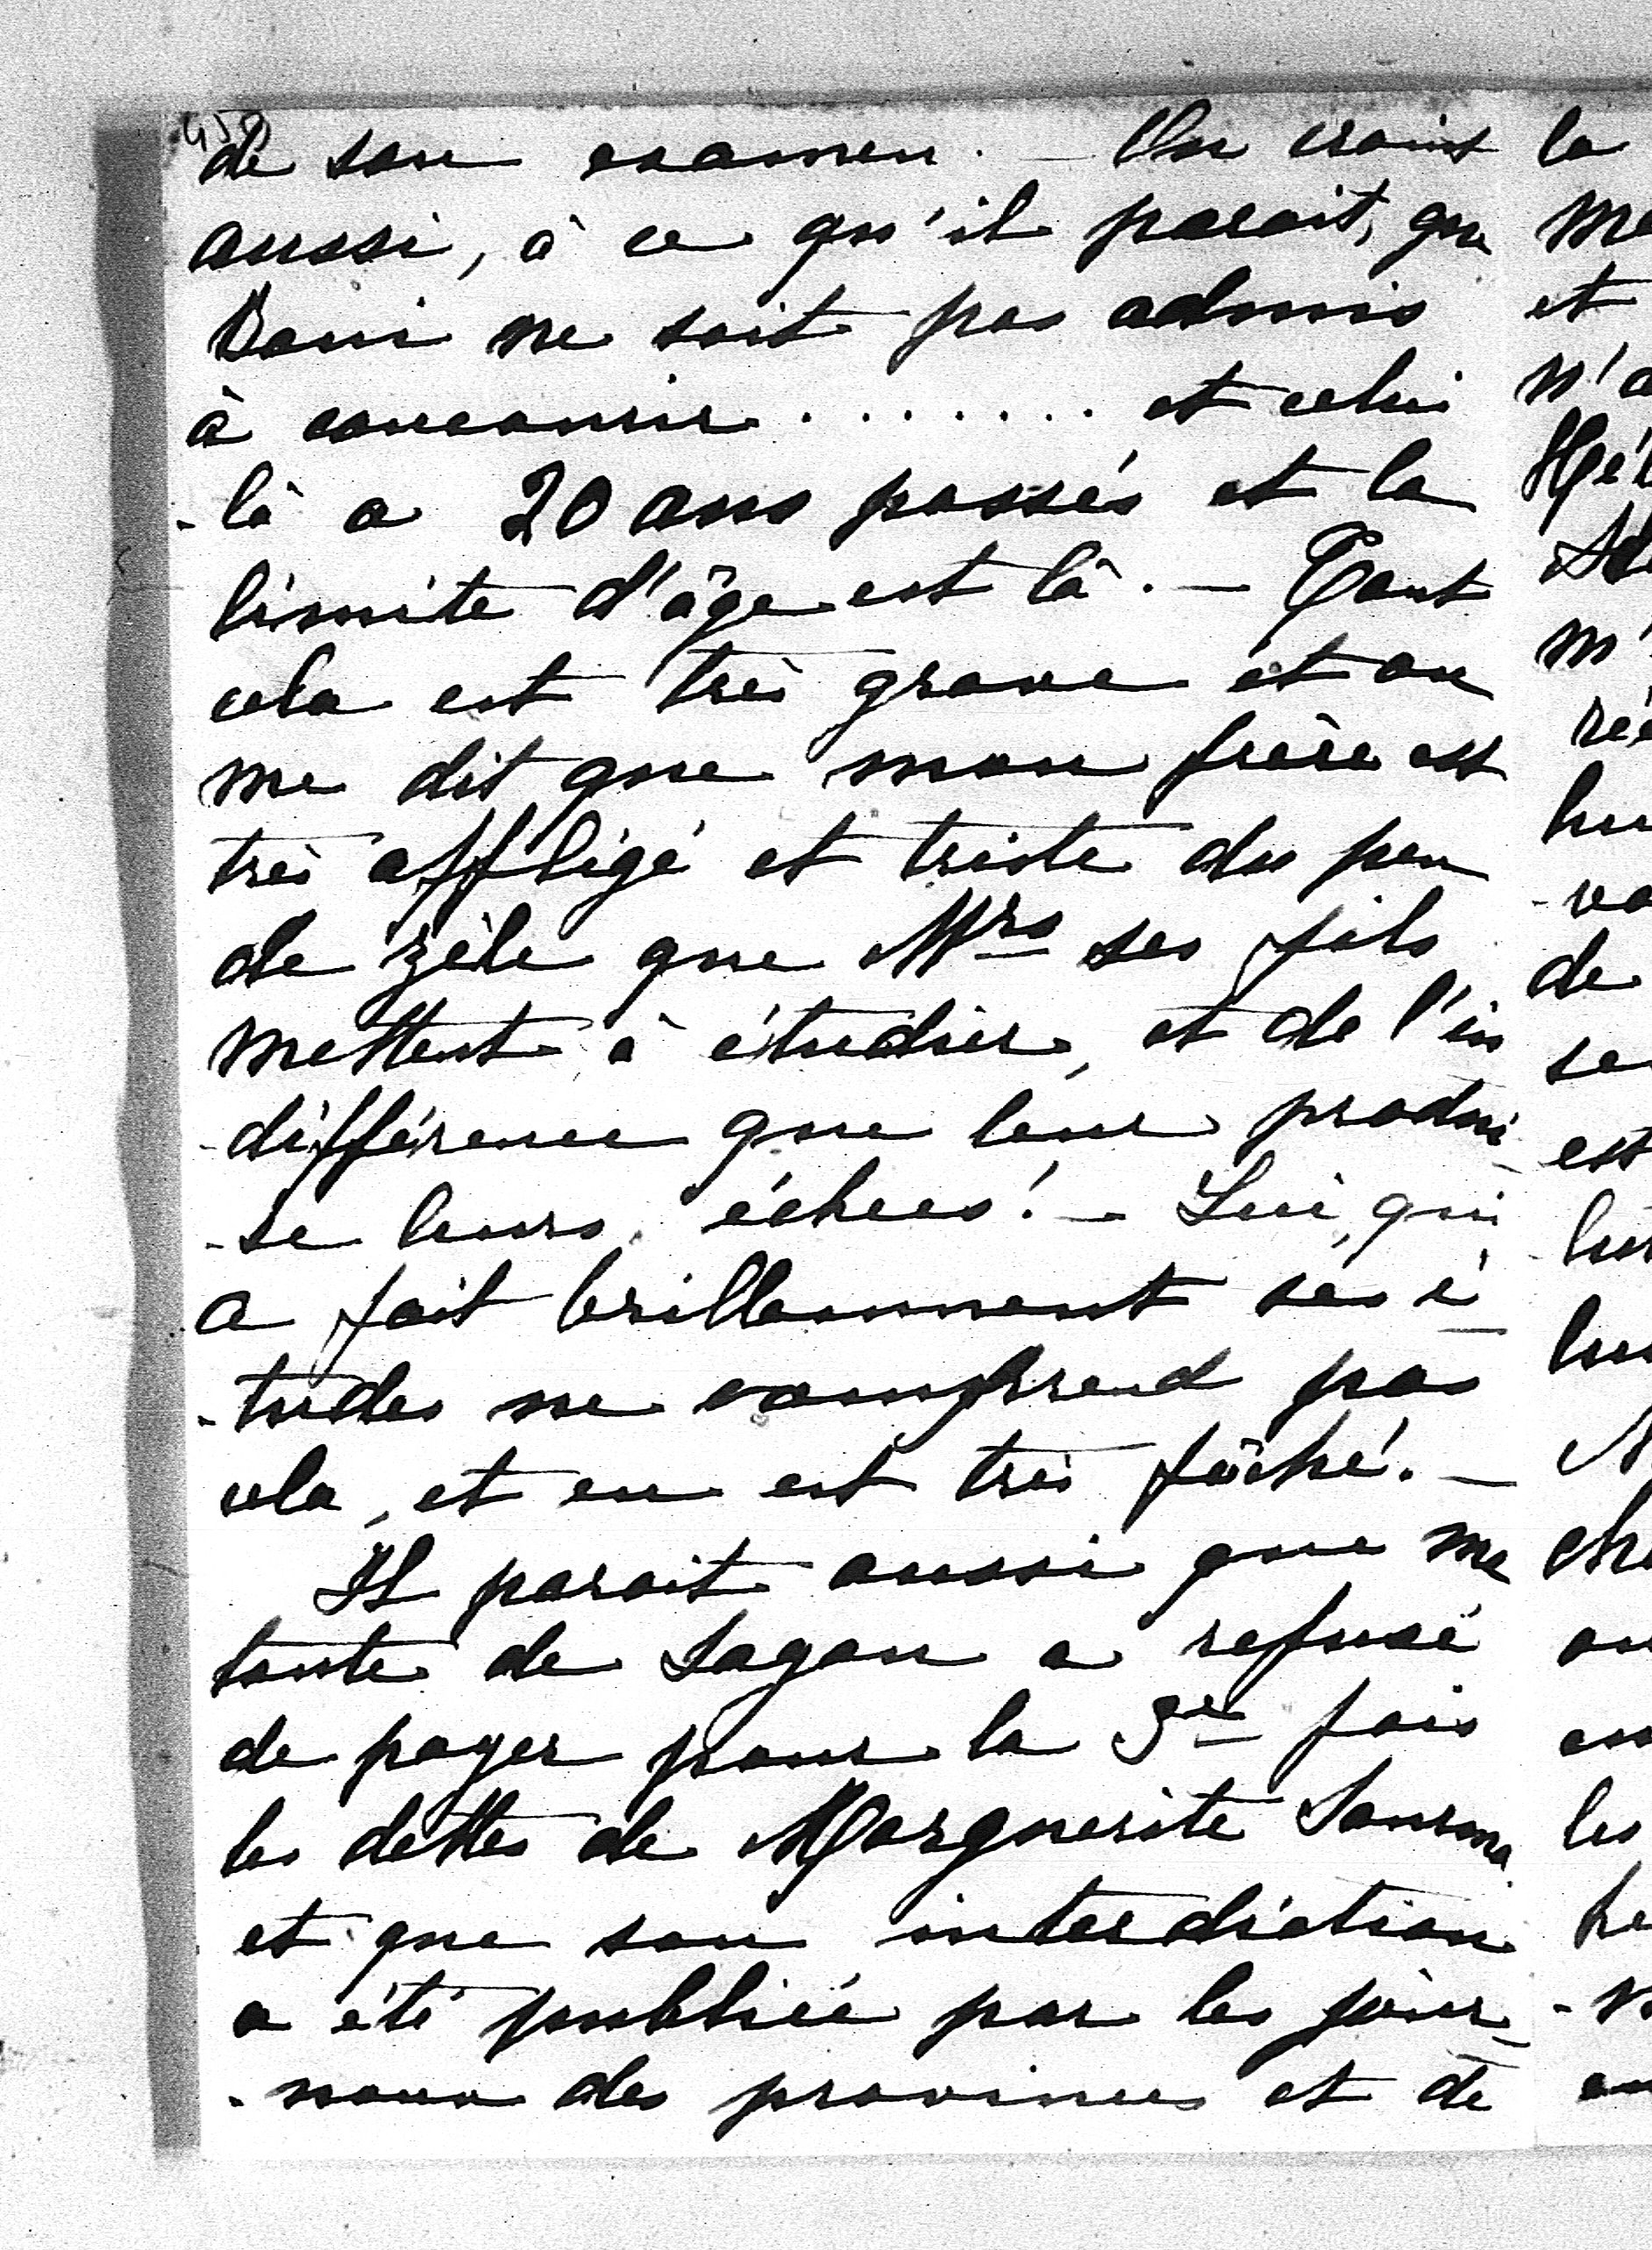 de son examen. — On craint
aussi, à ce qu'il parait, que
Boni ne soit pas admis
à concourir ........ et celui
-là a 20 ans passés et la
limite d'âge est là. — Tout
cela est très grave et on
me dit que mon frère est
très affligé et triste du peu
de zèle que Mrs ses fils
mettent à étudier, et de l'in
-différence que leur produi
-se leurs échecs! — Lui, qui
a fait brillamment ses é
-tudes ne comprend pas
cela, et en est très fâché. —
Il parait aussi que ma
tante de Sagan a refusé
de payer pour la 3e fois
les dettes de Marguerite Saurma
et que son interdiction
a été publiée par les jour-
-naux des provinces et de
la
et
de
est
les